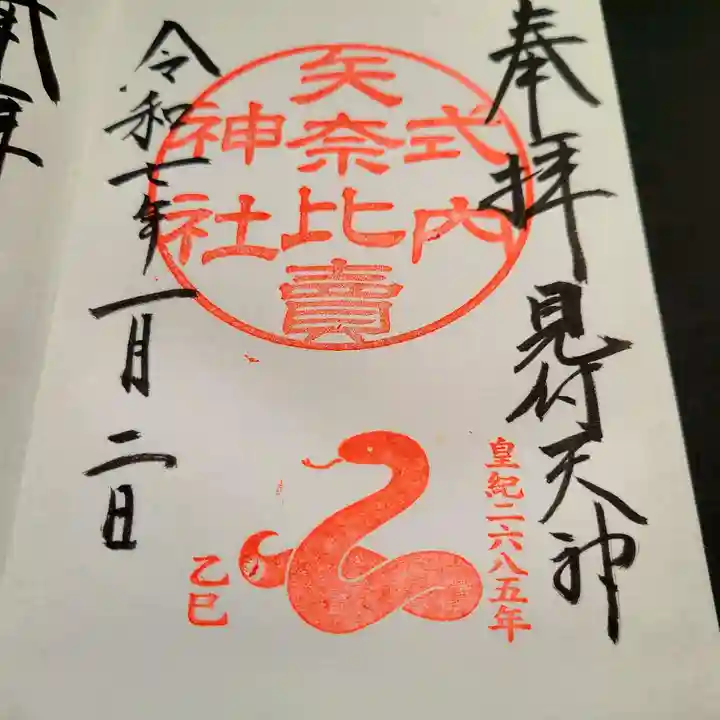 奉拝 見付天神
式内
矢奈比賣
神社
皇紀二六八五年
乙巳
令和七年一月二日